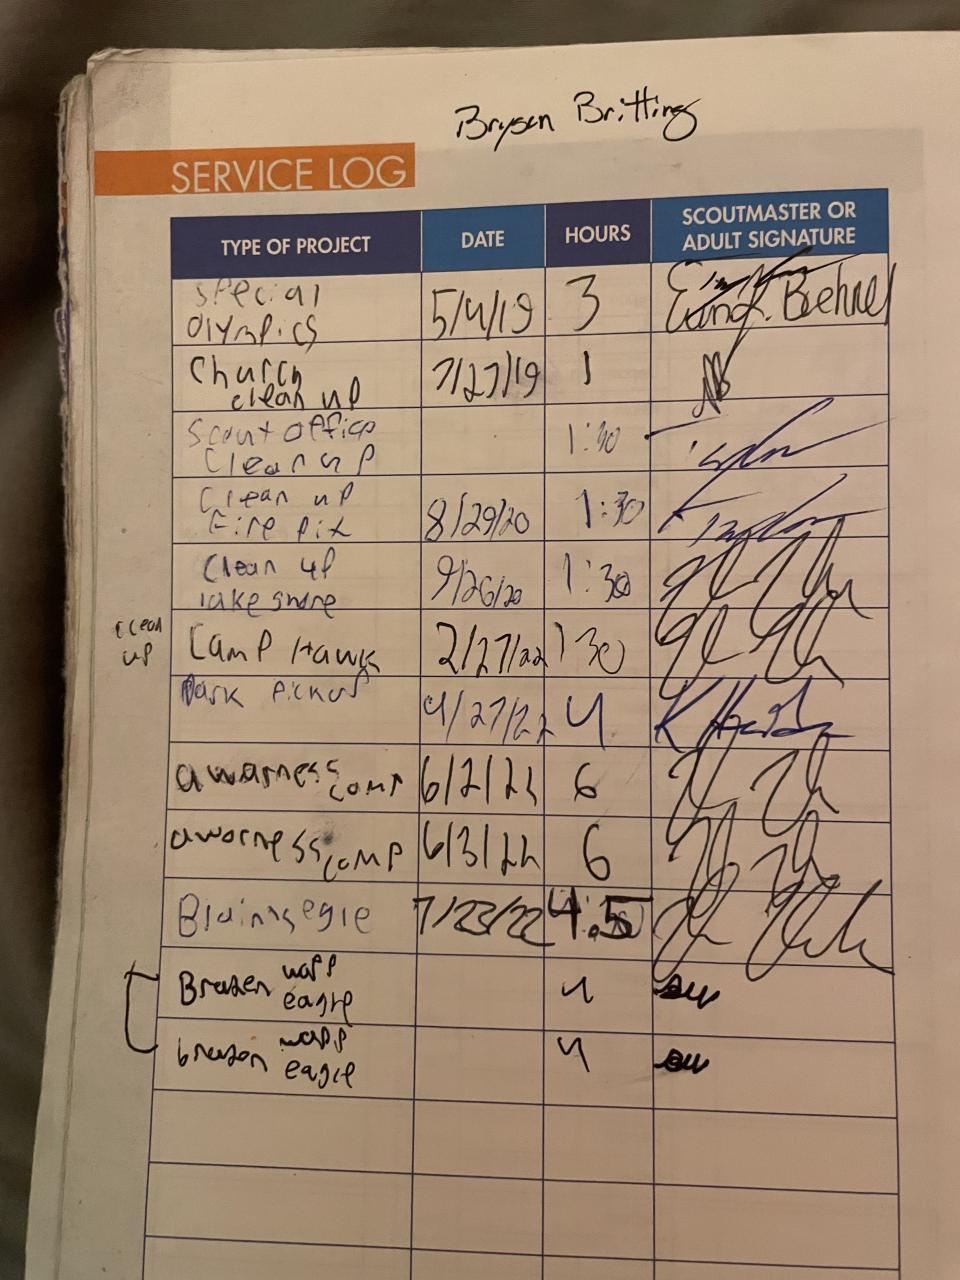 Brysen Britting
SERVICE LOG
TYPE OF PROJECT DATE HOURS SCOUTMASTER OR
ADULT SIGNATURE
special
Olympics 5/4/19 3 Boehnel
Church
clean up 7/27/19 1
Scout office
Clean up 1:30
Clean up
Fire pit 8/29/20 1:30
Clean up
lake shore 9/26/20 1:30
clean
up
Camp Hawk 2/27/22 1 30
Park Pickup 4/27/22 4
awarness comp 6/2/22 6
awarness comp 6/3/22 6
eagle 7/23/22 4.5
Brazen wapp
eagle 4
brazen wapp
eagle 4